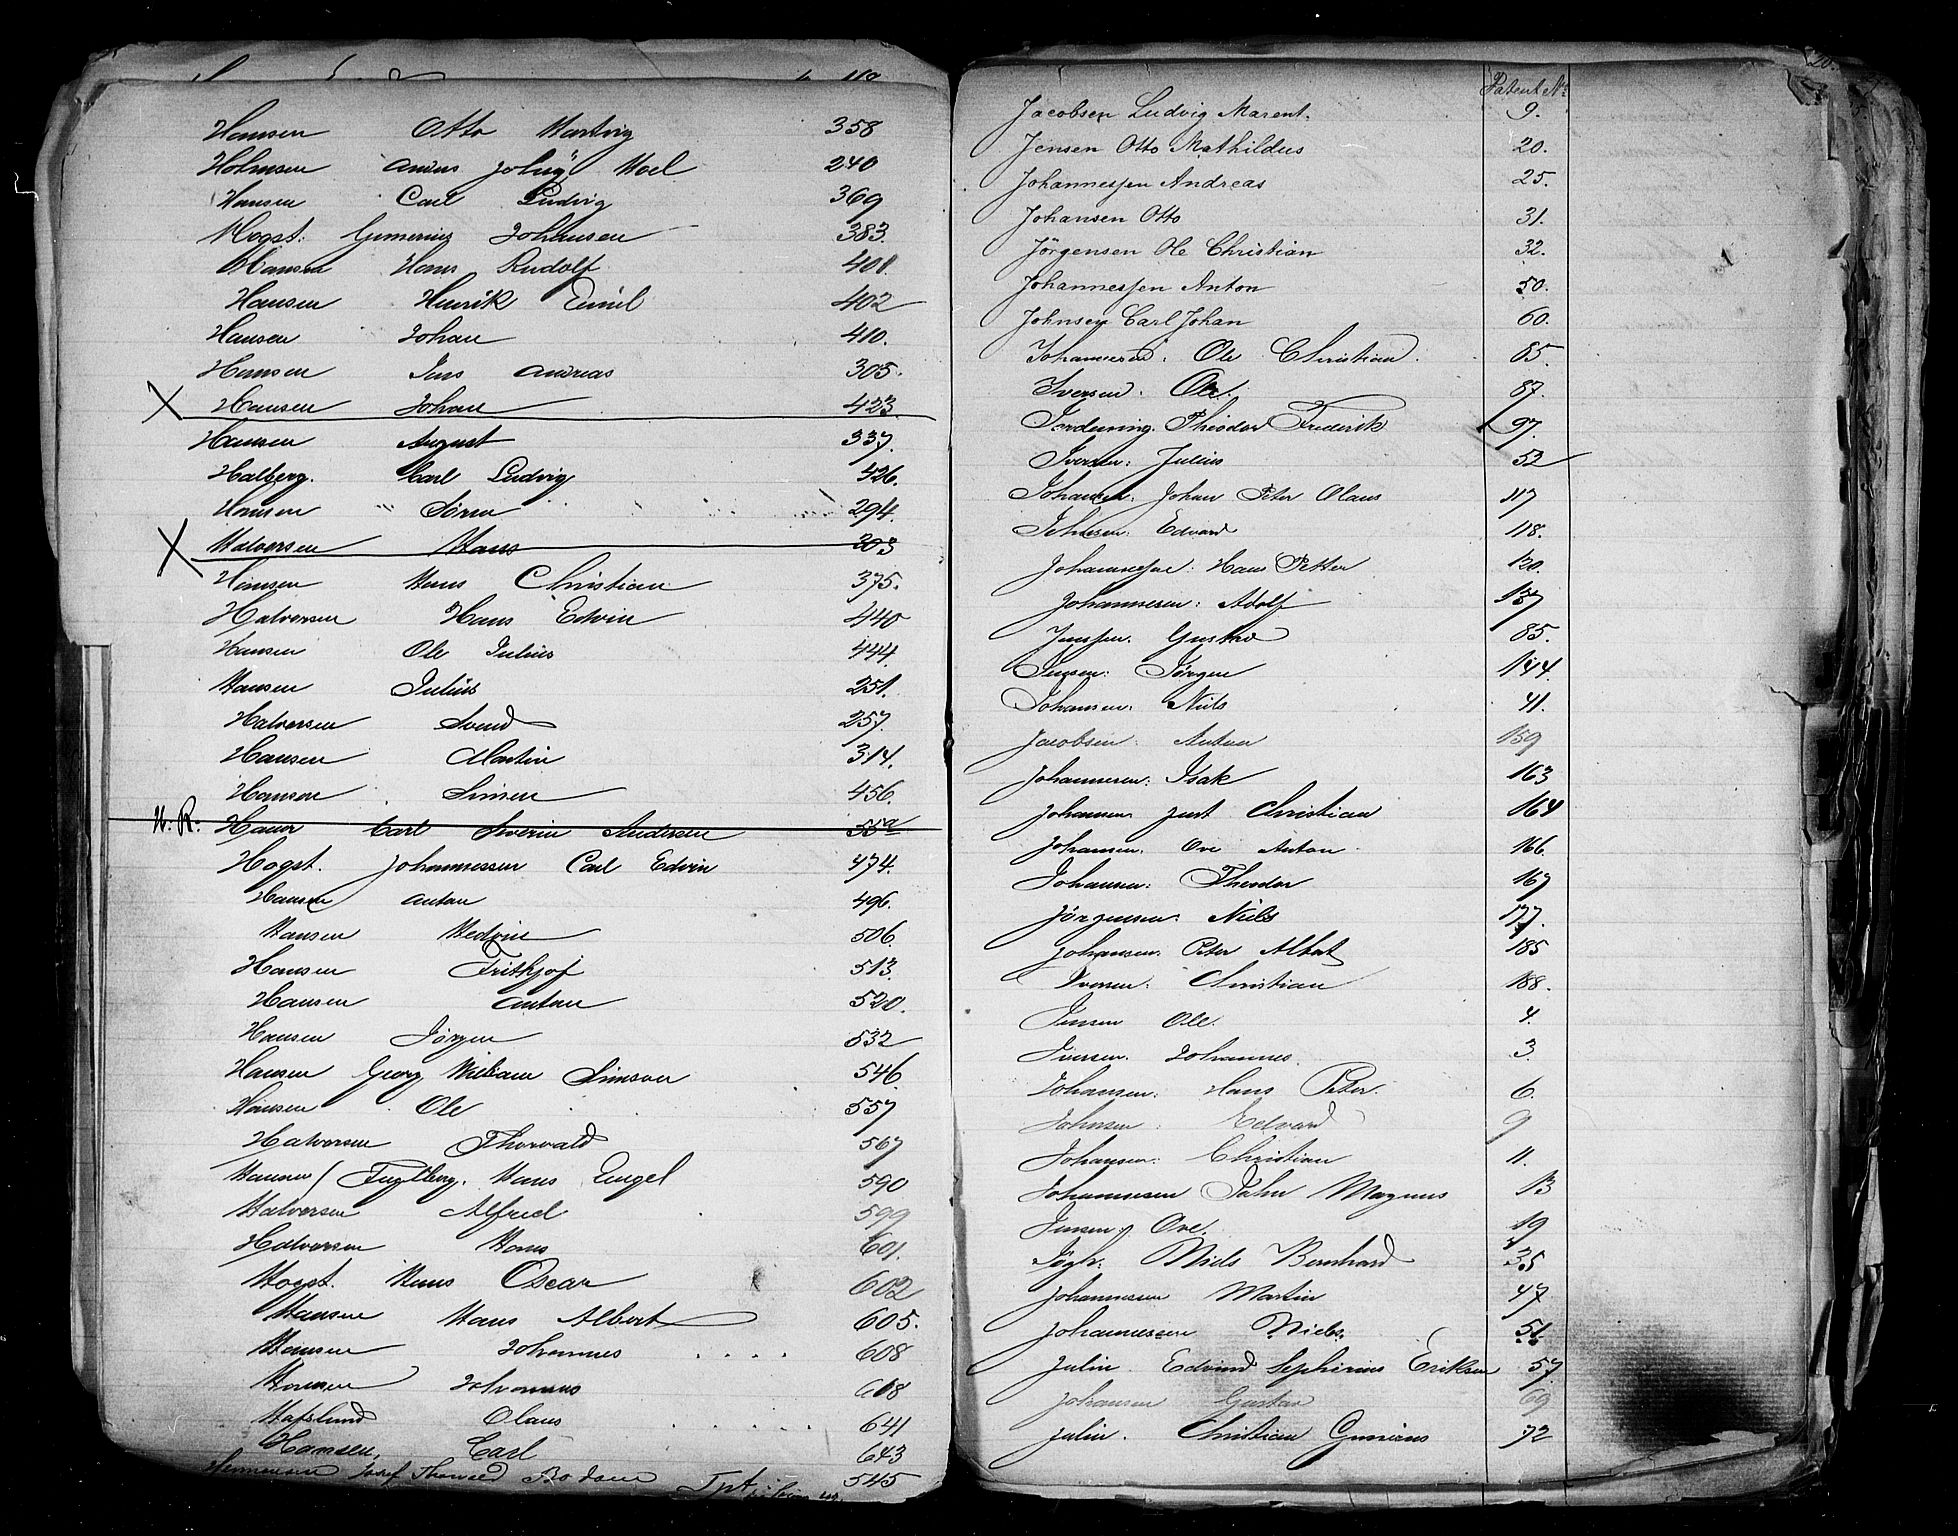 Hansen Otto Hartvig 358
Holmsen Anders Johan Hoel 240
Hansen Carl Ludvig 369
Hogst. Gumerius Johansen 383.
Hansen Hans Rudolf 401.
Hansen Henrik Emil 402
Hansen Johan 410.
Hansen Jens Andreas 305.
X Hansen Johan 423.
Hansen August 337.
Halberg. Carl Ludvig 426.
Hansen Sören 294.
X Halvorsen Hans 303
Hansen Hans Christian 375.
Halvorsen Hans Edvin 440
Hansen Ole Julius 444.
Hansen Julius 251.
Halvorsen Svend 257.
Hansen Martin 314.
Hansen Simen 456.
H. R: Hansen Carl Severin Andersen 55a
Hogst. Johannessen Carl Edvin 474.
Hansen Anton 496.
Hansen Hedvin 506.
Hansen Frithjof 513.
Hansen Anton 520.
Hansen Jörgen 532
Hansen Georg William Simson 546.
Hansen Ole 557
Halvorsen Thorvald 567
Hansen / Fuglberg. Hans Engel 590
Halvorsen Alfred 599
Halvorsen Hans 601.
Hogst. Hans Oscar 602
Hansen Hans Albert 605.
Hansen Johannes 608
Hansen Johannes 608
Hafslund Olaus 641
Hansen, Carl 643
Josef 545
Patent No
Jacobsen Ludvig Marent. 9.
Jensen Otto Mathildus 20.
Johannessen Andreas 25.
Johansen Otto 31.
Jörgensen Ole Christian 32.
Johannessen Anton 50.
Johnsen Carl Johan 60.
Johannesen: Ole Christian. 85.
Iversen: Ole. 87.
Theodor Frederik 97.
Iversen: Julius 52
Johansen: Johan Peter Olaus 117
Johnsen: Edvard 118.
Johannessen: Hans Petter 120.
Johannesen: Adolf 137
Jenssen. Gustav 85.
Jensen: Jörgen 144.
Johansen: Niels 41.
Jacobsen: Anton 159
Johannesen: Isak 163
Johansen Just Christian 164
Johansen: Ove Anton 166.
Johansen: Theodor 167
Jörgensen: Niels 177.
Johansen: Peter Albert 185
Iversen: Christian 188.
Jensen Ole. 4.
Iversen. Johannes. 3.
Johansen: Hans Peter. 6.
Johnsen: Edvard 9
Johansen: Christian 11.
Johannesen John Magnus 13
Jensen, Ove. 19
Niels Bernhard 35
Johannesen Martin 47.
Johannesen Niels. 51.
Julin. Edvind Sephirius Eriksen 57.
Johansen Gustav 69
Julin. Christian Gunerius 72